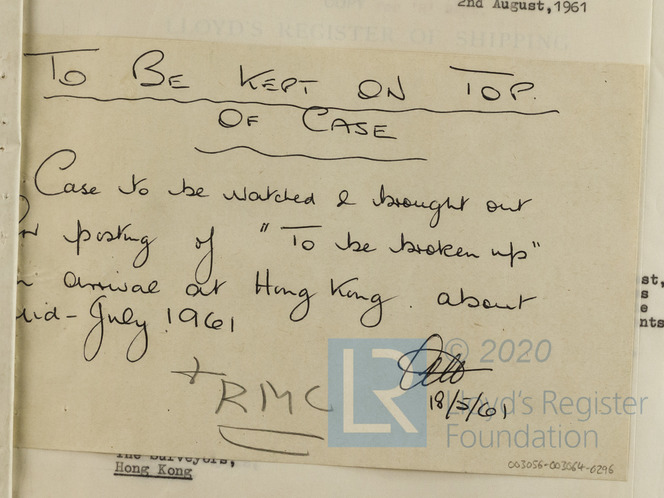 2nd August, 1961
LLOYD'S REGISTER OF SHIPPING
TO BE KEPT ON TOP.
OF CASE
Case to be watched & brought out
posting of "To be broken up"
arrival at Hong Kong. about
mid-July 1961
RMC
18/5/61
st,
s
e
nts
LR
© 2020
Lloyd's Register
Foundation
The Surveyors,
Hong Kong
003056-003064-0296